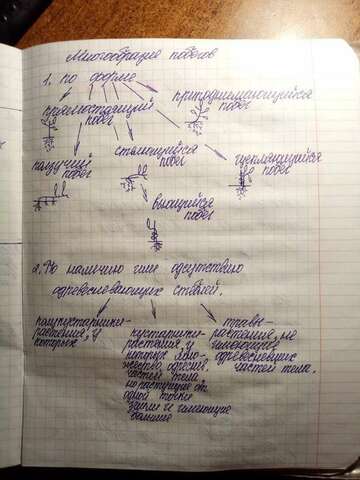 Многообразие побегов
1. по форме
прямостоящий
побег
приподнимающийся
побег
ползучий
побег
стелющийся
побег
цепляющийся
побег
вьющийся
побег
2. По наличию или отсутствию
одревесневающих стеблей.
полукустарники-
растения, у
которых
кустарники-
растения, у
которых мно-
жество, одревес.
частей тела,
но растущие от
одной точки
земли и имеющие
большие
травы-
растения, не
имеющие
одревесневших
частей тела.